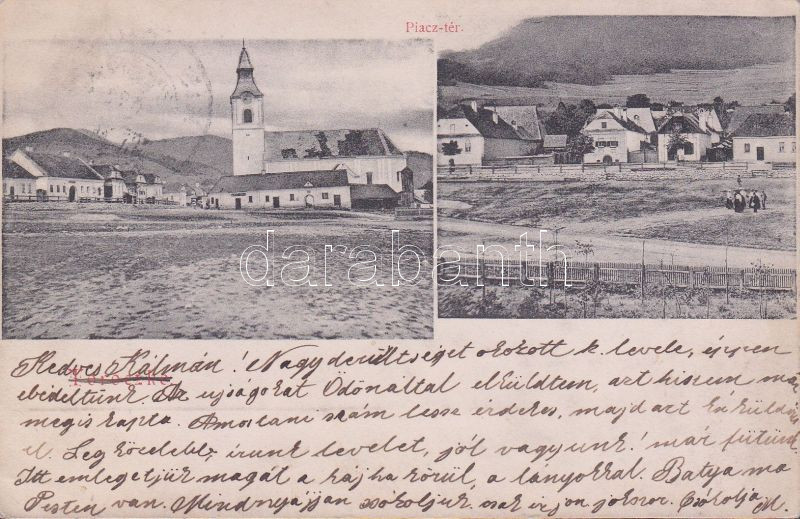 Piacz-tér.
darabanth
Torockó
Kedves Kálmán! Nagy derültséget okozott k. levele, éppen
ebédeltünk. Az ujságokat Ödönnáltal elküldtem, azt hiszem már
megis kapta. A mostani szám lesz érdekes, majd azt én küldöm
el. Leg közelebb, irunk levelet, jól vagyunk! már fütünk,
Itt emlegetjük magát a kájha körül, a lányokkal. Batya ma
Pesten van. Mindnyájjan csókoljuk csak irjon sokszor. Csókolja M.